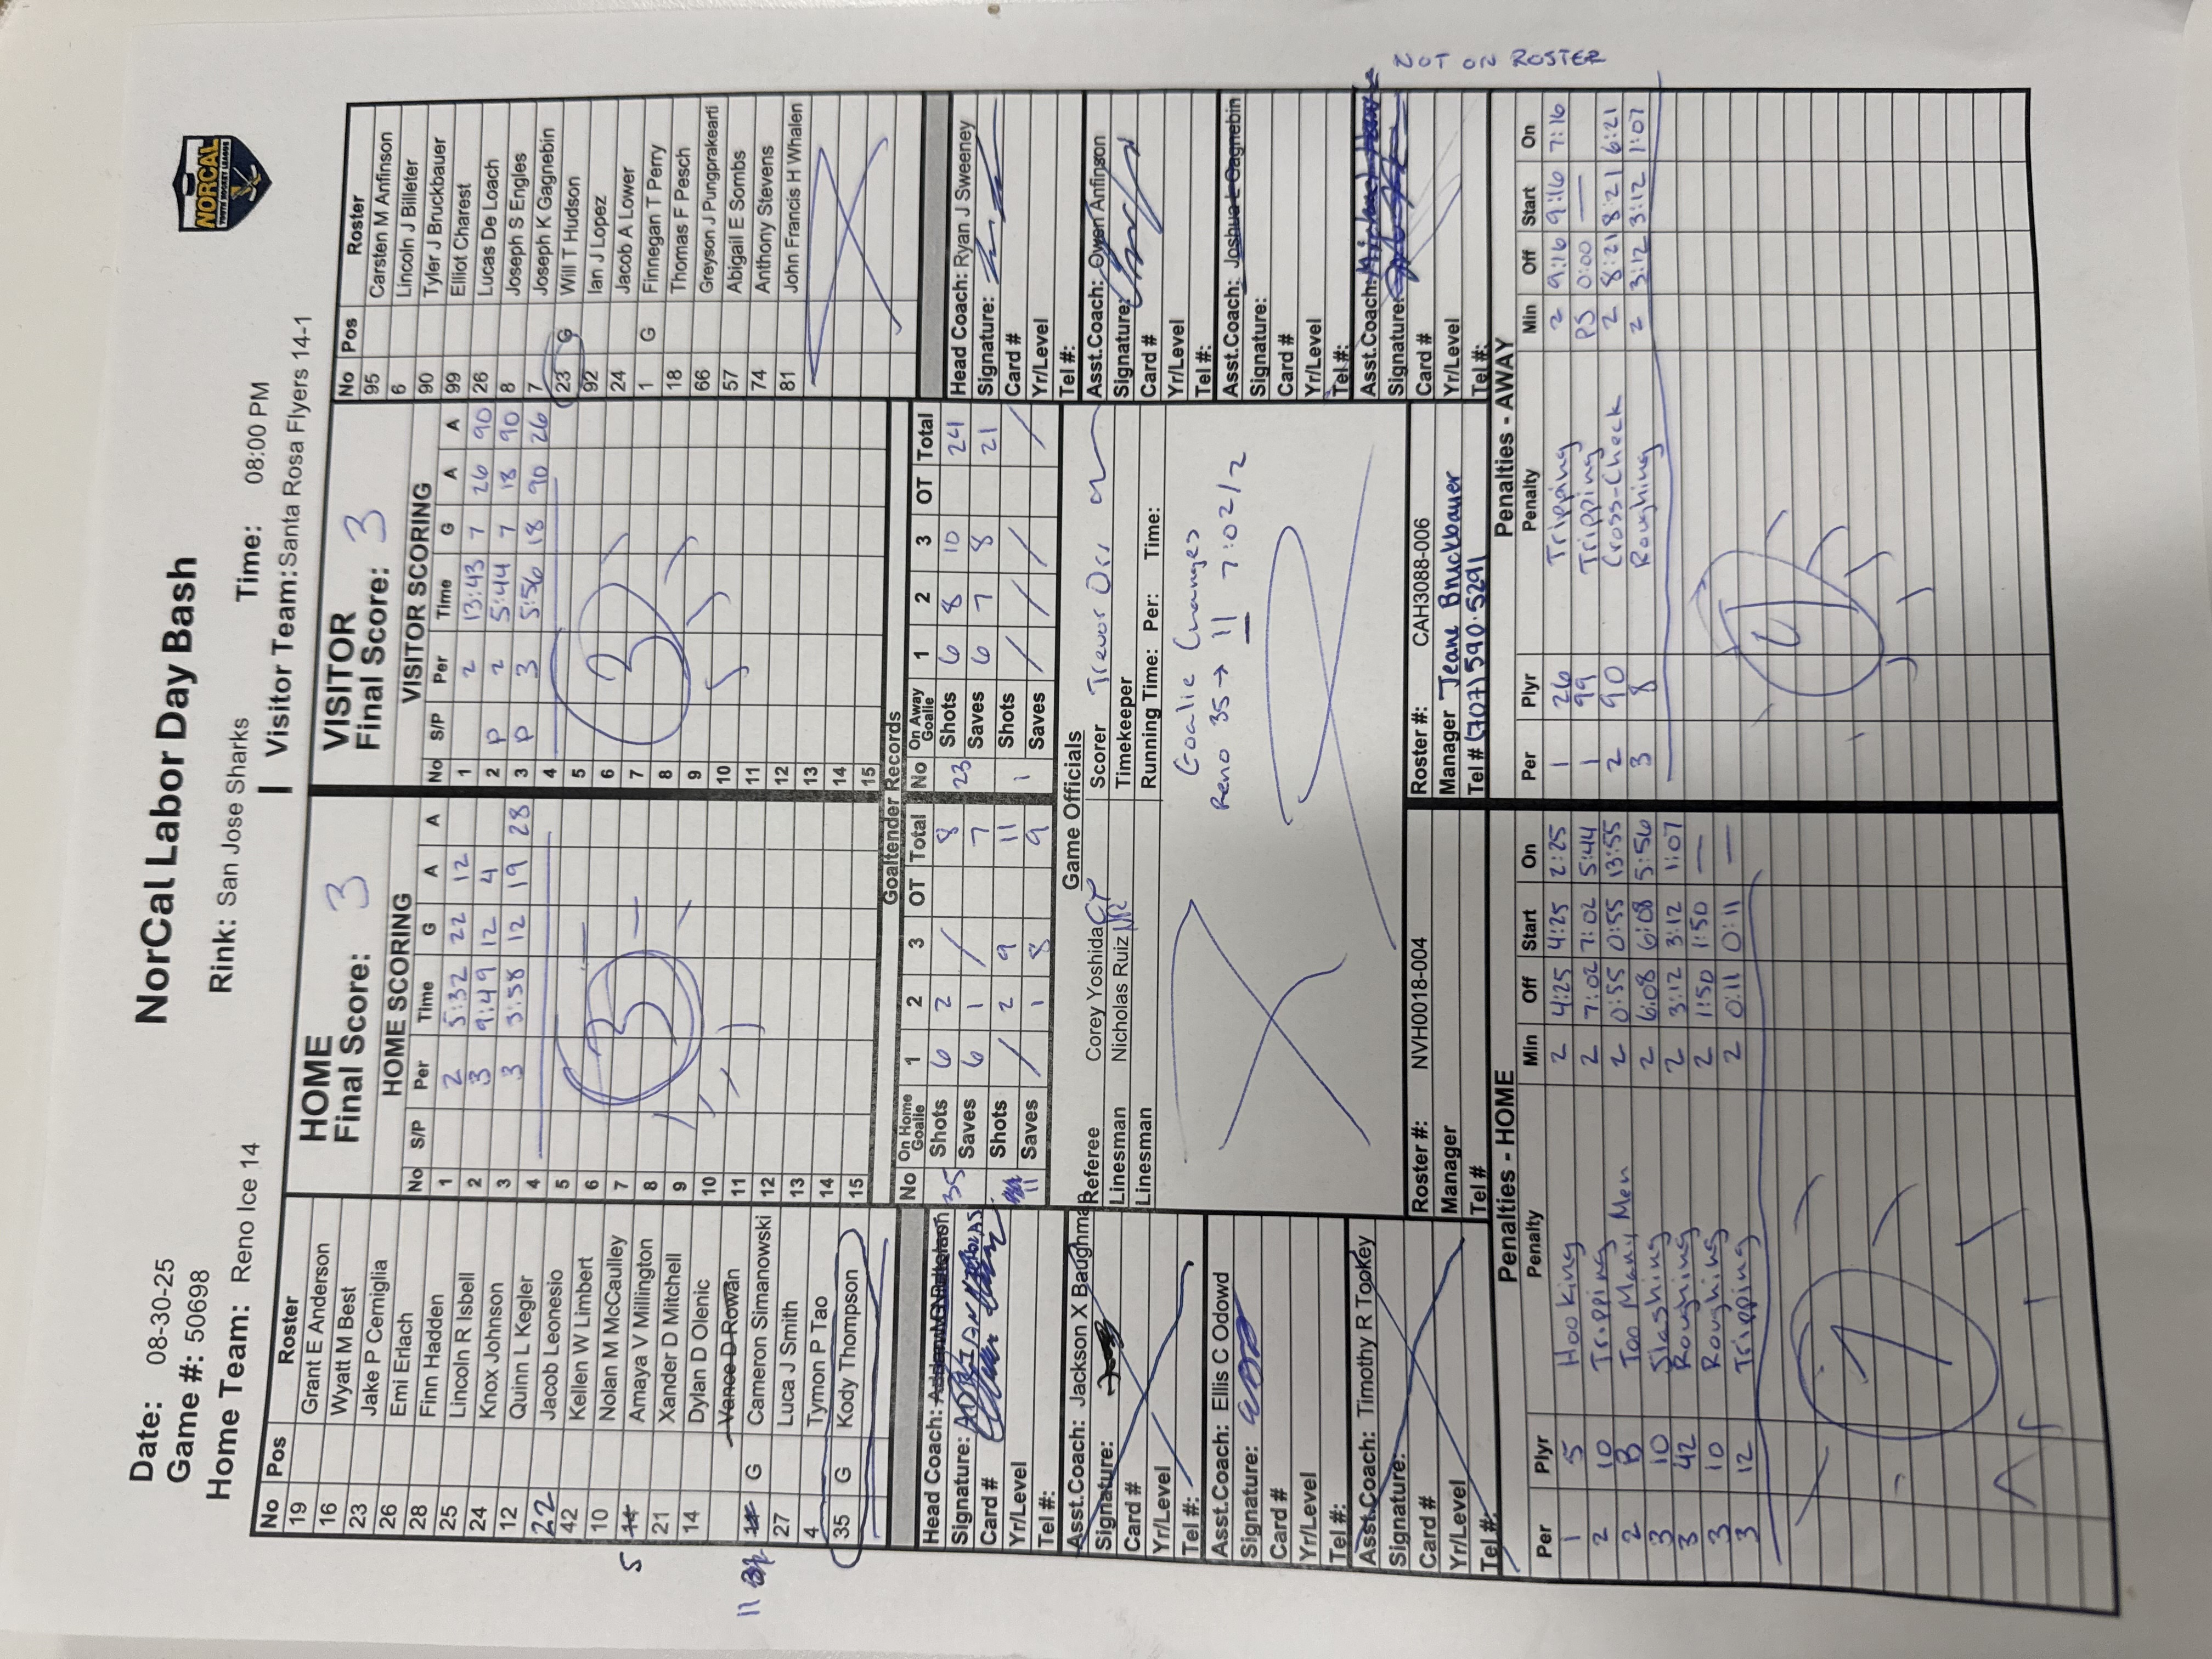 NorCal Labor Day Bash
NORCAL
YOUTH HOCKEY LEAGUE
Date: 08-30-25
Game #: 50698
Rink: San Jose Sharks
Time: 08:00 PM
Home Team: Reno Ice 14
Visitor Team: Santa Rosa Flyers 14-1
No Pos Roster
19 Grant E Anderson
16 Wyatt M Best
23 Jake P Cerniglia
26 Emi Erlach
28 Finn Hadden
25 Lincoln R Isbell
24 Knox Johnson
12 Quinn L Kegler
22 Jacob Leonesio
42 Kellen W Limbert
10 Nolan M McCaulley
5 Amaya V Millington
21 Xander D Mitchell
14 Dylan D Olenic
Vance D Rowan
11 G Cameron Simanowski
27 Luca J Smith
4 Tymon P Tao
35 G Kody Thompson
HOME
Final Score: 3
HOME SCORING
No S/P Per Time G A A
1 2 5:32 22 12
2 3 9:49 12 4
3 3 3:58 12 19 28
4
5
6
7
8
9
10
11
12
13
14
15
3
VISITOR
Final Score: 3
VISITOR SCORING
No S/P Per Time G A A
1 2 13:43 7 26 90
2 P 2 5:44 7 18 90
3 P 3 5:56 18 90 26
4
5
6
7
8
9
10
11
12
13
14
15
3
No Pos Roster
95 Carsten M Anfinson
6 Lincoln J Billeter
90 Tyler J Bruckbauer
99 Elliot Charest
26 Lucas De Loach
8 Joseph S Engles
7 Joseph K Gagnebin
23 G Will T Hudson
92 Ian J Lopez
24 Jacob A Lower
1 G Finnegan T Perry
18 Thomas F Pesch
66 Greyson J Pungprakearti
57 Abigail E Sombs
74 Anthony Stevens
81 John Francis H Whalen
Goaltender Records
No On Home Goalie 1 2 3 OT Total
35 Shots 6 2 / 8
Saves 6 1 7
11 Shots / 2 9 11
Saves 1 8 9
No On Away Goalie 1 2 3 OT Total
23 Shots 6 8 10 24
Saves 6 7 8 21
1 Shots / / / /
Saves
Head Coach:
Signature:
Card #
Yr/Level
Tel #:
Asst.Coach: Jackson X Baughma
Signature:
Card #
Yr/Level
Tel #:
Asst.Coach: Ellis C Odowd
Signature:
Card #
Yr/Level
Tel #:
Asst.Coach: Timothy R Tookey
Signature:
Card #
Yr/Level
Tel #:
Game Officials
Referee Corey Yoshida CY
Linesman Nicholas Ruiz NR
Linesman
Scorer Trevor Orr
Timekeeper
Running Time: Per: Time:
Goalie Changes
Reno 35 → 11 7:02/2
Roster #: NVH0018-004
Manager
Tel #
Roster #: CAH3088-006
Manager Jeane Bruckbauer
Tel # (707) 590-5291
Head Coach: Ryan J Sweeney
Signature:
Card #
Yr/Level
Tel #:
Asst.Coach: Owen Anfinson
Signature:
Card #
Yr/Level
Tel #:
Asst.Coach: Joshua L Gagnebin
Signature:
Card #
Yr/Level
Tel #:
Asst.Coach:
Signature:
Card #
Yr/Level
Tel #:
NOT ON ROSTER
Penalties - HOME
Per Plyr Penalty Min Off Start On
1 5 Hooking 2 4:25 4:25 2:25
2 10 Tripping 2 7:02 7:02 5:44
2 B Too Many Men 2 0:55 0:55 13:55
3 10 Slashing 2 6:08 6:08 5:56
3 42 Roughing 2 3:12 3:12 1:07
3 10 Roughing 2 1:50 1:50 —
3 12 Tripping 2 0:11 0:11 —
7
Penalties - AWAY
Per Plyr Penalty Min Off Start On
1 26 Tripping 2 9:16 9:16 7:16
1 99 Tripping PS 0:00 —
2 90 Cross-Check 2 8:21 8:21 6:21
3 8 Roughing 2 3:12 3:12 1:07